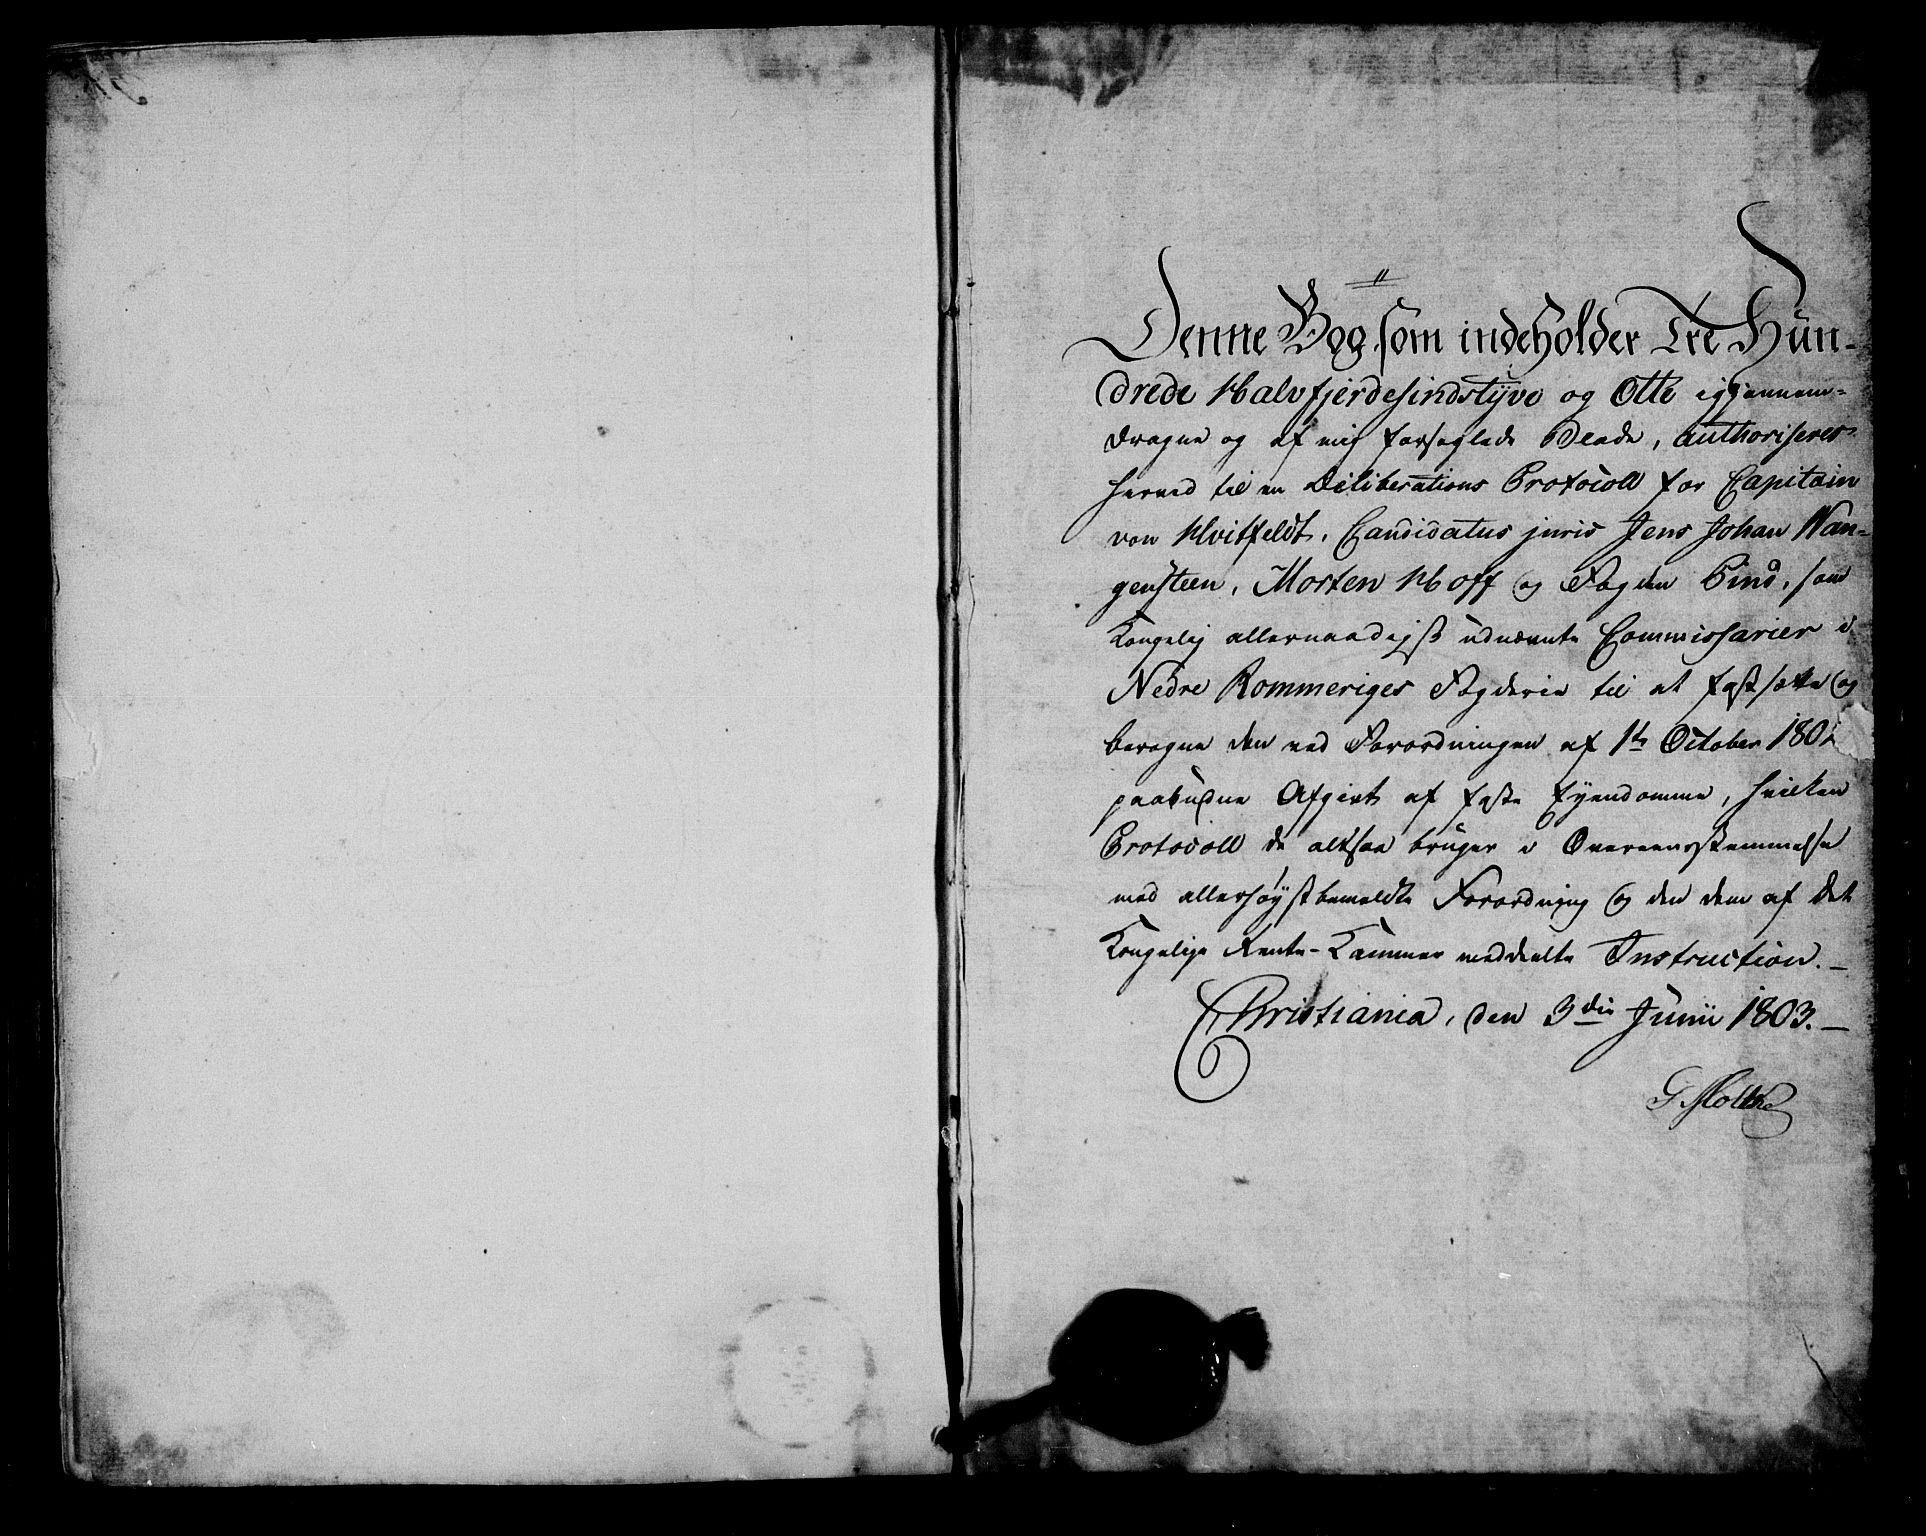 Denne Bog som indeholder Tre Hun-
drede Halvfjerdesindstyve og Otte igjennem-
dragne og af mig forseglede Blade, authoriseres
herved til en Deliberations Protocoll for Capitain
von Hvitfeldt, Candidatus juris Jens Johan Wan-
gensteen, Morten Hoff og Fogden Pind, som
Kongelig allernaadigst udnævnte Commissarier i
Nedre Rommeriges Fogderie til at fastsætte og
beregne den ved Forordningen af 1te October 1802
paabudne Afgivt af faste Eyendomme, hvilken
Protocoll de altsaa bruger i Overeensstemmelse
med allerhøystbemeldte Forordning og den dem af det
Kongelige Rente-Kammer meddeelte Instruction.—
Christiania, den 3die Junii 1803.—
G. Moltke